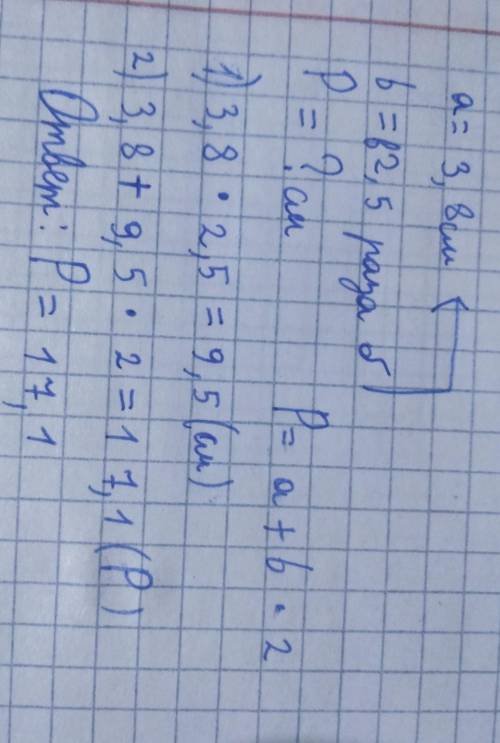 a = 3,8см
b = в2,5 раза б
P = ? см P = a + b · 2
1) 3,8 · 2,5 = 9,5 (см)
2) 3,8 + 9,5 · 2 = 17,1 (P)
Ответ: P = 17,1